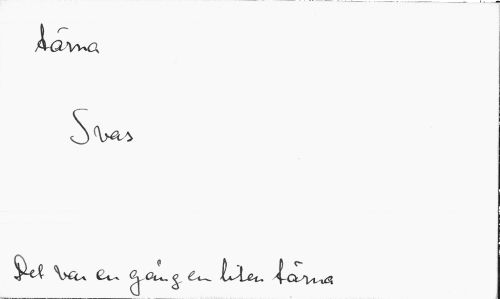 tärna
Svas
Det var en gång en liten tärna